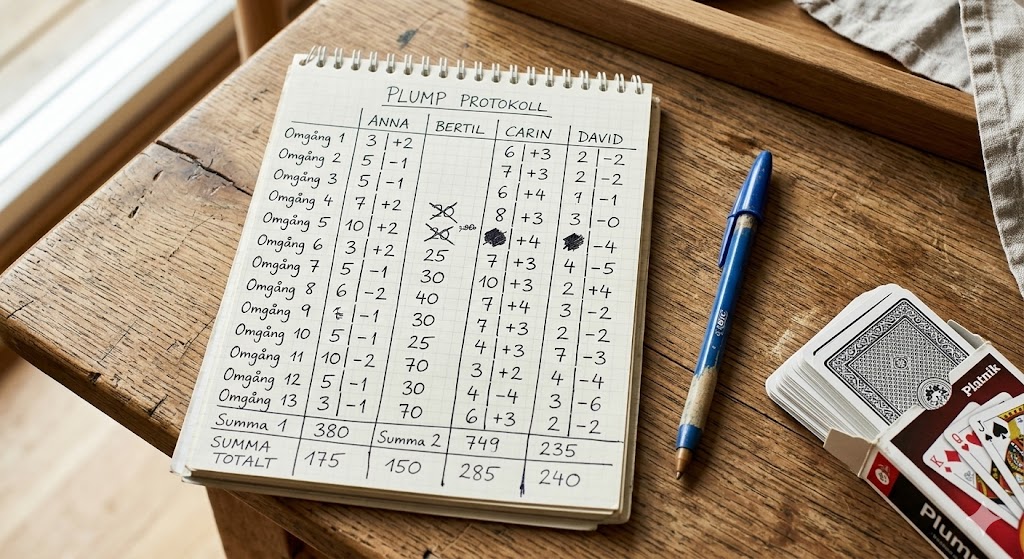 PLUMP PROTOKOLL
ANNA BERTIL CARIN DAVID
Omgång 1 3 +2 6 +3 2 -2
Omgång 2 5 -1 7 +3 2 -2
Omgång 3 5 -1 6 +4 -1
Omgång 4 7 +2 20 8 +3 3 -0
Omgång 5 10 +2 20 +4 -4
Omgång 6 3 +2 25 7 +3 4 -5
Omgång 7 5 -1 30 10 +3 2 +4
Omgång 8 6 -2 40 7 +4 3 -2
Omgång 9 -1 30 7 +3 2 -2
Omgång 10 5 -1 25 4 +3 7 -3
Omgång 11 10 -2 70 3 +2 4 -4
Omgång 12 5 -1 30 4 -4 3 -6
Omgång 13 3 -1 70 6 +3 2 -2
Summa 1 380 Summa 2 749 235
SUMMA TOTALT 175 150 285 240
BIC
Piatnik
K Q J
Plum